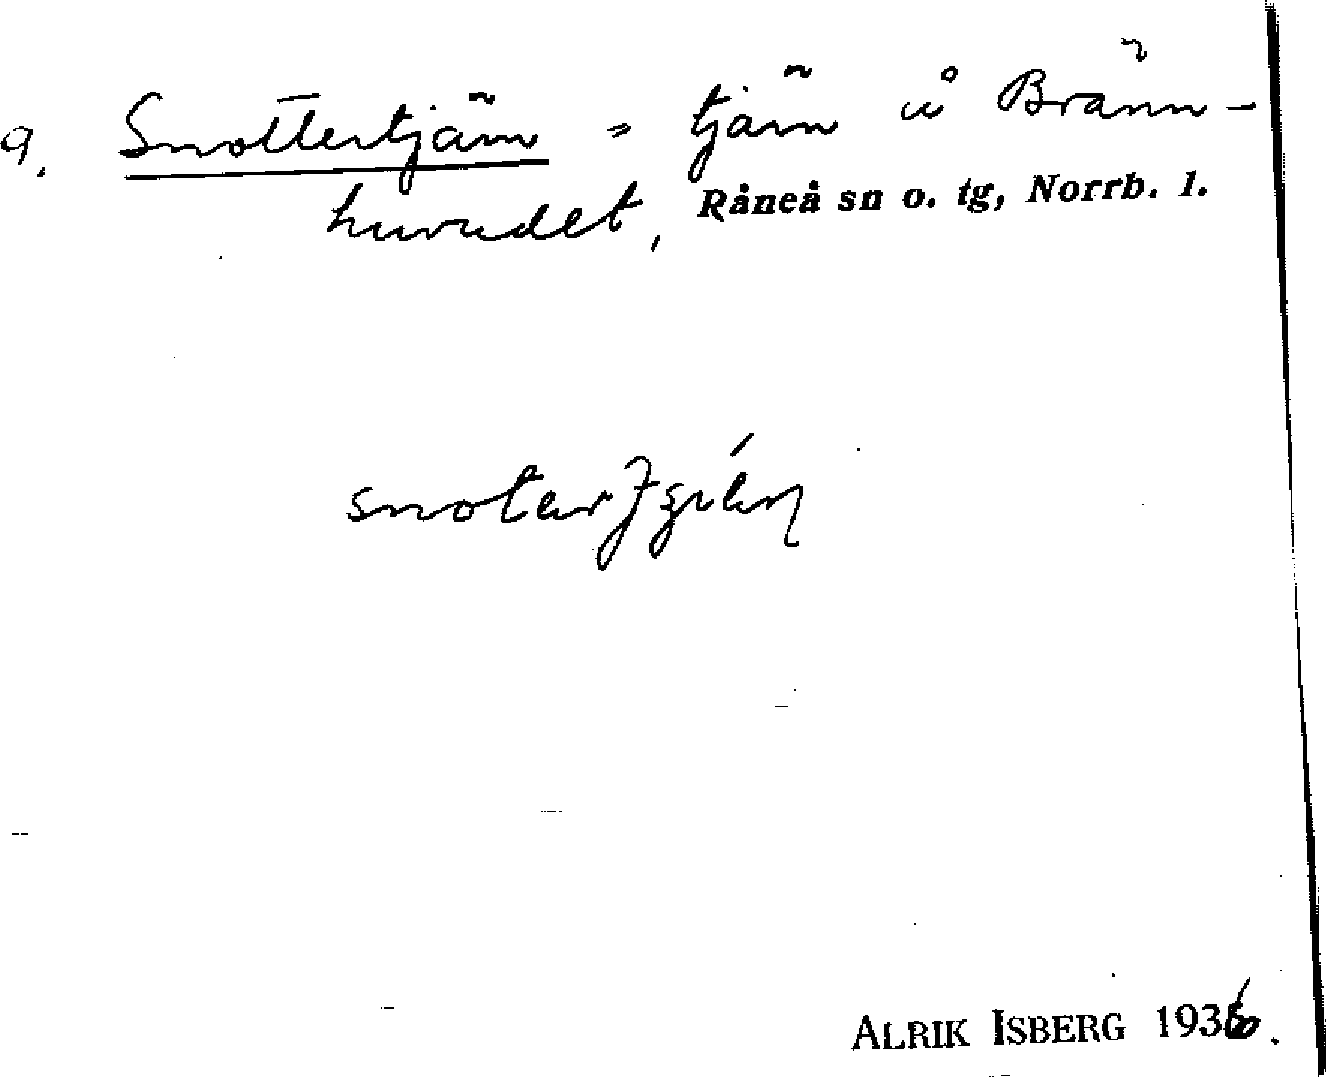 9. Snottertjärn = tjärn å Bränn-
huvudet, Råneå sn o. tg, Norrb. l.
ALRIK ISBERG 1936.